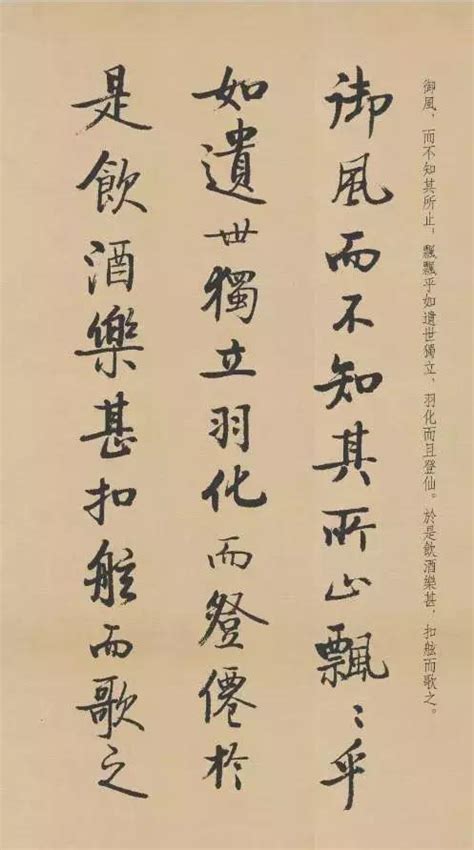 御風、而不知其所止；飄飄乎如遺世獨立、羽化而且登仙。於是飲酒樂甚，扣舷而歌之。
御風而不知其所止飄〻乎
如遺世獨立羽化而登僊於
是飲酒樂甚扣舷而歌之